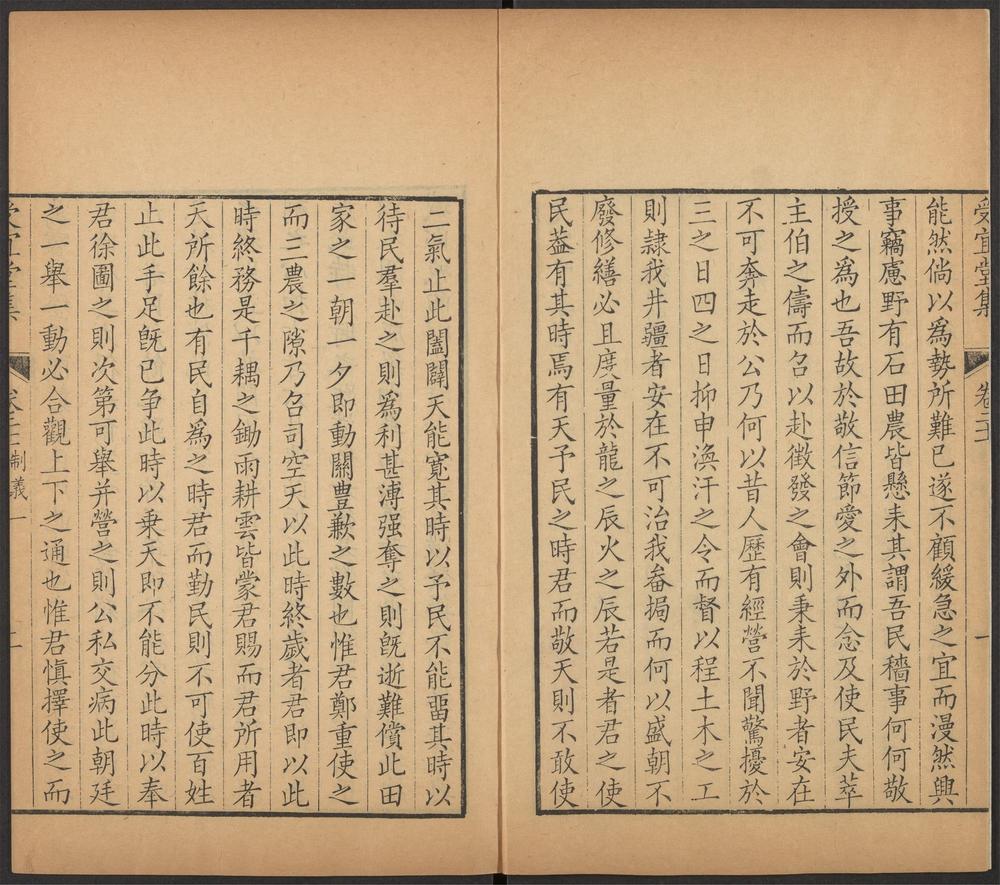 受宜堂集 卷二十 一
能然倘以為勢所難已遂不顧緩急之宜而漫然興
事竊慮野有石田農皆懸耒其謂吾民穡事何何敬
授之為也吾故於敬信節愛之外而念及使民夫萃
主伯之儔而召以赴徵發之會則秉耒於野者安在
不可奔走於公乃何以昔人歷有經營不聞驚擾於
三之日四之日抑申渙汗之令而督以程土木之工
則隷我井疆者安在不可治我畚挶而何以盛朝不
廢修繕必且度量於龍之辰火之辰若是者君之使
民葢有其時焉有天予民之時君而敬天則不敢使
二氣止此闔闢天能寬其時以予民不能畱其時以
待民羣赴之則為利甚溥强奪之則旣逝難償此田
家之一朝一夕即動關豊歉之數也惟君鄭重使之
而三農之隙乃召司空天以此時終歲者君即以此
時終務是千耦之鋤雨耕雲皆蒙君賜而君所用者
天所餘也有民自為之時君而勤民則不可使百姓
止此手足旣已争此時以乗天即不能分此時以奉
君徐圖之則次第可舉并營之則公私交病此朝廷
之一舉一動必合觀上下之通也惟君慎擇使之而
受宜堂集 制義一 二